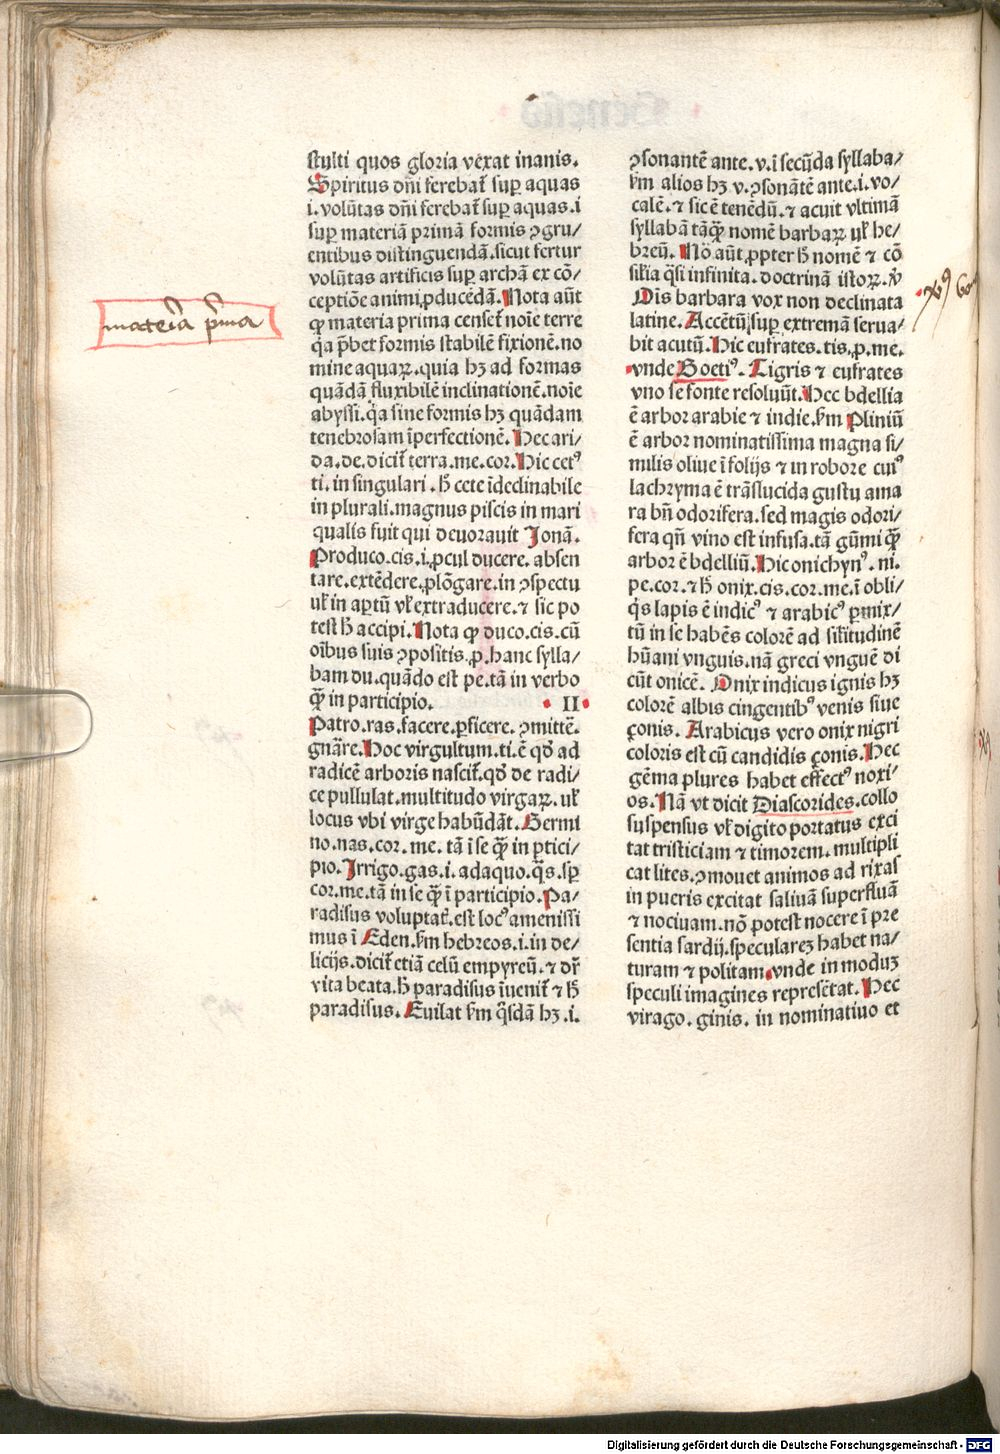 stulti quos gloria vexat inanis.
Spiritus dñi ferebat̃ suꝑ aquas
i. volũtas dñi ferebat̃ suꝑ aquas. i
suꝑ materiã primã formis ꝯgru/
entibus distinguendã. sicut fertur
volũtas artificis suꝑ archã ex cõ/
ceptiõe animi ꝓducẽdã. Nota aũt
ꝙ materia prima censet̃ noĩe terre
q̃a p̃bet formis stabilẽ fixionẽ. no
mine aquaꝝ. quia hꝫ ad formas
quãdã fluxibilẽ inclinationẽ. noĩe
abyssi. q̃a sine formis hꝫ quãdam
tenebrosam ĩperfectionẽ. Hec ari/
da. de. dicit̃ terra. me. cor. Hic cetꝰ
ti. in singulari. h̃ cete ĩdeclinabile
in plurali. magnus piscis in mari
qualis fuit qui deuorauit Jonã.
Produco. cis. i. ꝓcul ducere. absen
tare. extẽdere. ꝓlõgare. in ꝯspectu
ul̃ in apertũ vl̃ extraducere. ⁊ sic po
test h̃ accipi. Nota ꝙ duco. cis. cũ
oĩbus suis ꝯpositis. ꝓ. hanc sylla/
bam du. quãdo est pe. tã in verbo
ꝙ̃ in participio. II
Patro. ras. facere. ꝑficere. ꝯmittẽ.
gnãre. Hoc virgultum. ti. ẽ qď ad
radicẽ arboris nascit̃. qď de radi/
ce pullulat. multitudo virgaꝝ. ul̃
locus vbi virge habũdãt. Germi
no. nas. cor. me. tã ĩ se ꝙ̃ in ꝑtici/
pio. Jrrigo. gas. i. adaquo. q̃s. sꝑ
cor. me. tã in se ꝙ̃ ĩ participio. Pa/
radisus voluptat̃. est locꝰ amenissi
mus ĩ Eden. s̃m hebreos. i. in de/
licijs. dicit̃ etiã celũ empyreũ. ⁊ dr̃
vita beata. h̃ paradisus ĩuenit̃ ⁊ h̃
paradisus. Euilat s̃m q̃sdã hꝫ. i.
ꝯsonantẽ ante. v. ĩ secũda syllaba/
s̃m alios hꝫ v. ꝯsonãtẽ ante. i. vo/
calẽ. ⁊ sic ẽ tenẽdũ. ⁊ acuit vltimã
syllabã tãꝙ̃ nomẽ barbaꝝ ul̃ he/
breũ. Nõ aũt ꝓpter h̃ nomẽ ⁊ cõ
sil̃ia q̃si infinita. doctrinã istoꝝ. ꝟ̃
Dis barbara vox non declinata
latine. Accẽtũ suꝑ extremã serua/
bit acutũ. Hic eufrates. tis. ꝓ. me.
vnde Boetiꝰ. Tigris ⁊ eufrates
vno se fonte resoluũt. Hec bdellia
ẽ arbor arabie ⁊ indie. s̃m Pliniũ
ẽ arbor nominatissima magna si/
milis oliue ĩ folijs ⁊ in robore cuiꝰ
lachryma ẽ trãslucida gustu ama
ra bñ odorifera. sed magis odori/
fera qñ vino est infusa. tã gũmi ꝙ̃
arbor ẽ bdelliũ. Hic onichynꝰ. ni.
pe. cor. ⁊ h̃ onix. cis. cor. me. ĩ obli/
q̃s lapis ẽ indicꝰ ⁊ arabicꝰ ꝑmix/
tũ in se habẽs colorẽ ad sil̃itudinẽ
hũani vnguis. nã greci vnguẽ di
cũt onicẽ. Onix indicus ignis hꝫ
colorẽ albis cingentibꝰ venis siue
çonis. Arabicus vero onix nigri
coloris est cũ candidis çonis. Hec
gẽma plures habet effectꝰ noxi/
os. Nã vt dicit Diascorides. collo
suspensus vl̃ digito portatus exci
tat tristiciam ⁊ timorem. multipli
cat lites. ꝯmouet animos ad rixas
in pueris excitat saliuã superfluã
⁊ nociuam. nõ potest nocere ĩ pre
sentia sardij. specularẽ habet na/
turam ⁊ politam. vnde in moduꝫ
speculi imagines represẽtat. Hec
virago. ginis. in nominatiuo et
materia p̃ma
Digitalisierung gefördert durch die Deutsche Forschungsgemeinschaft - DFG